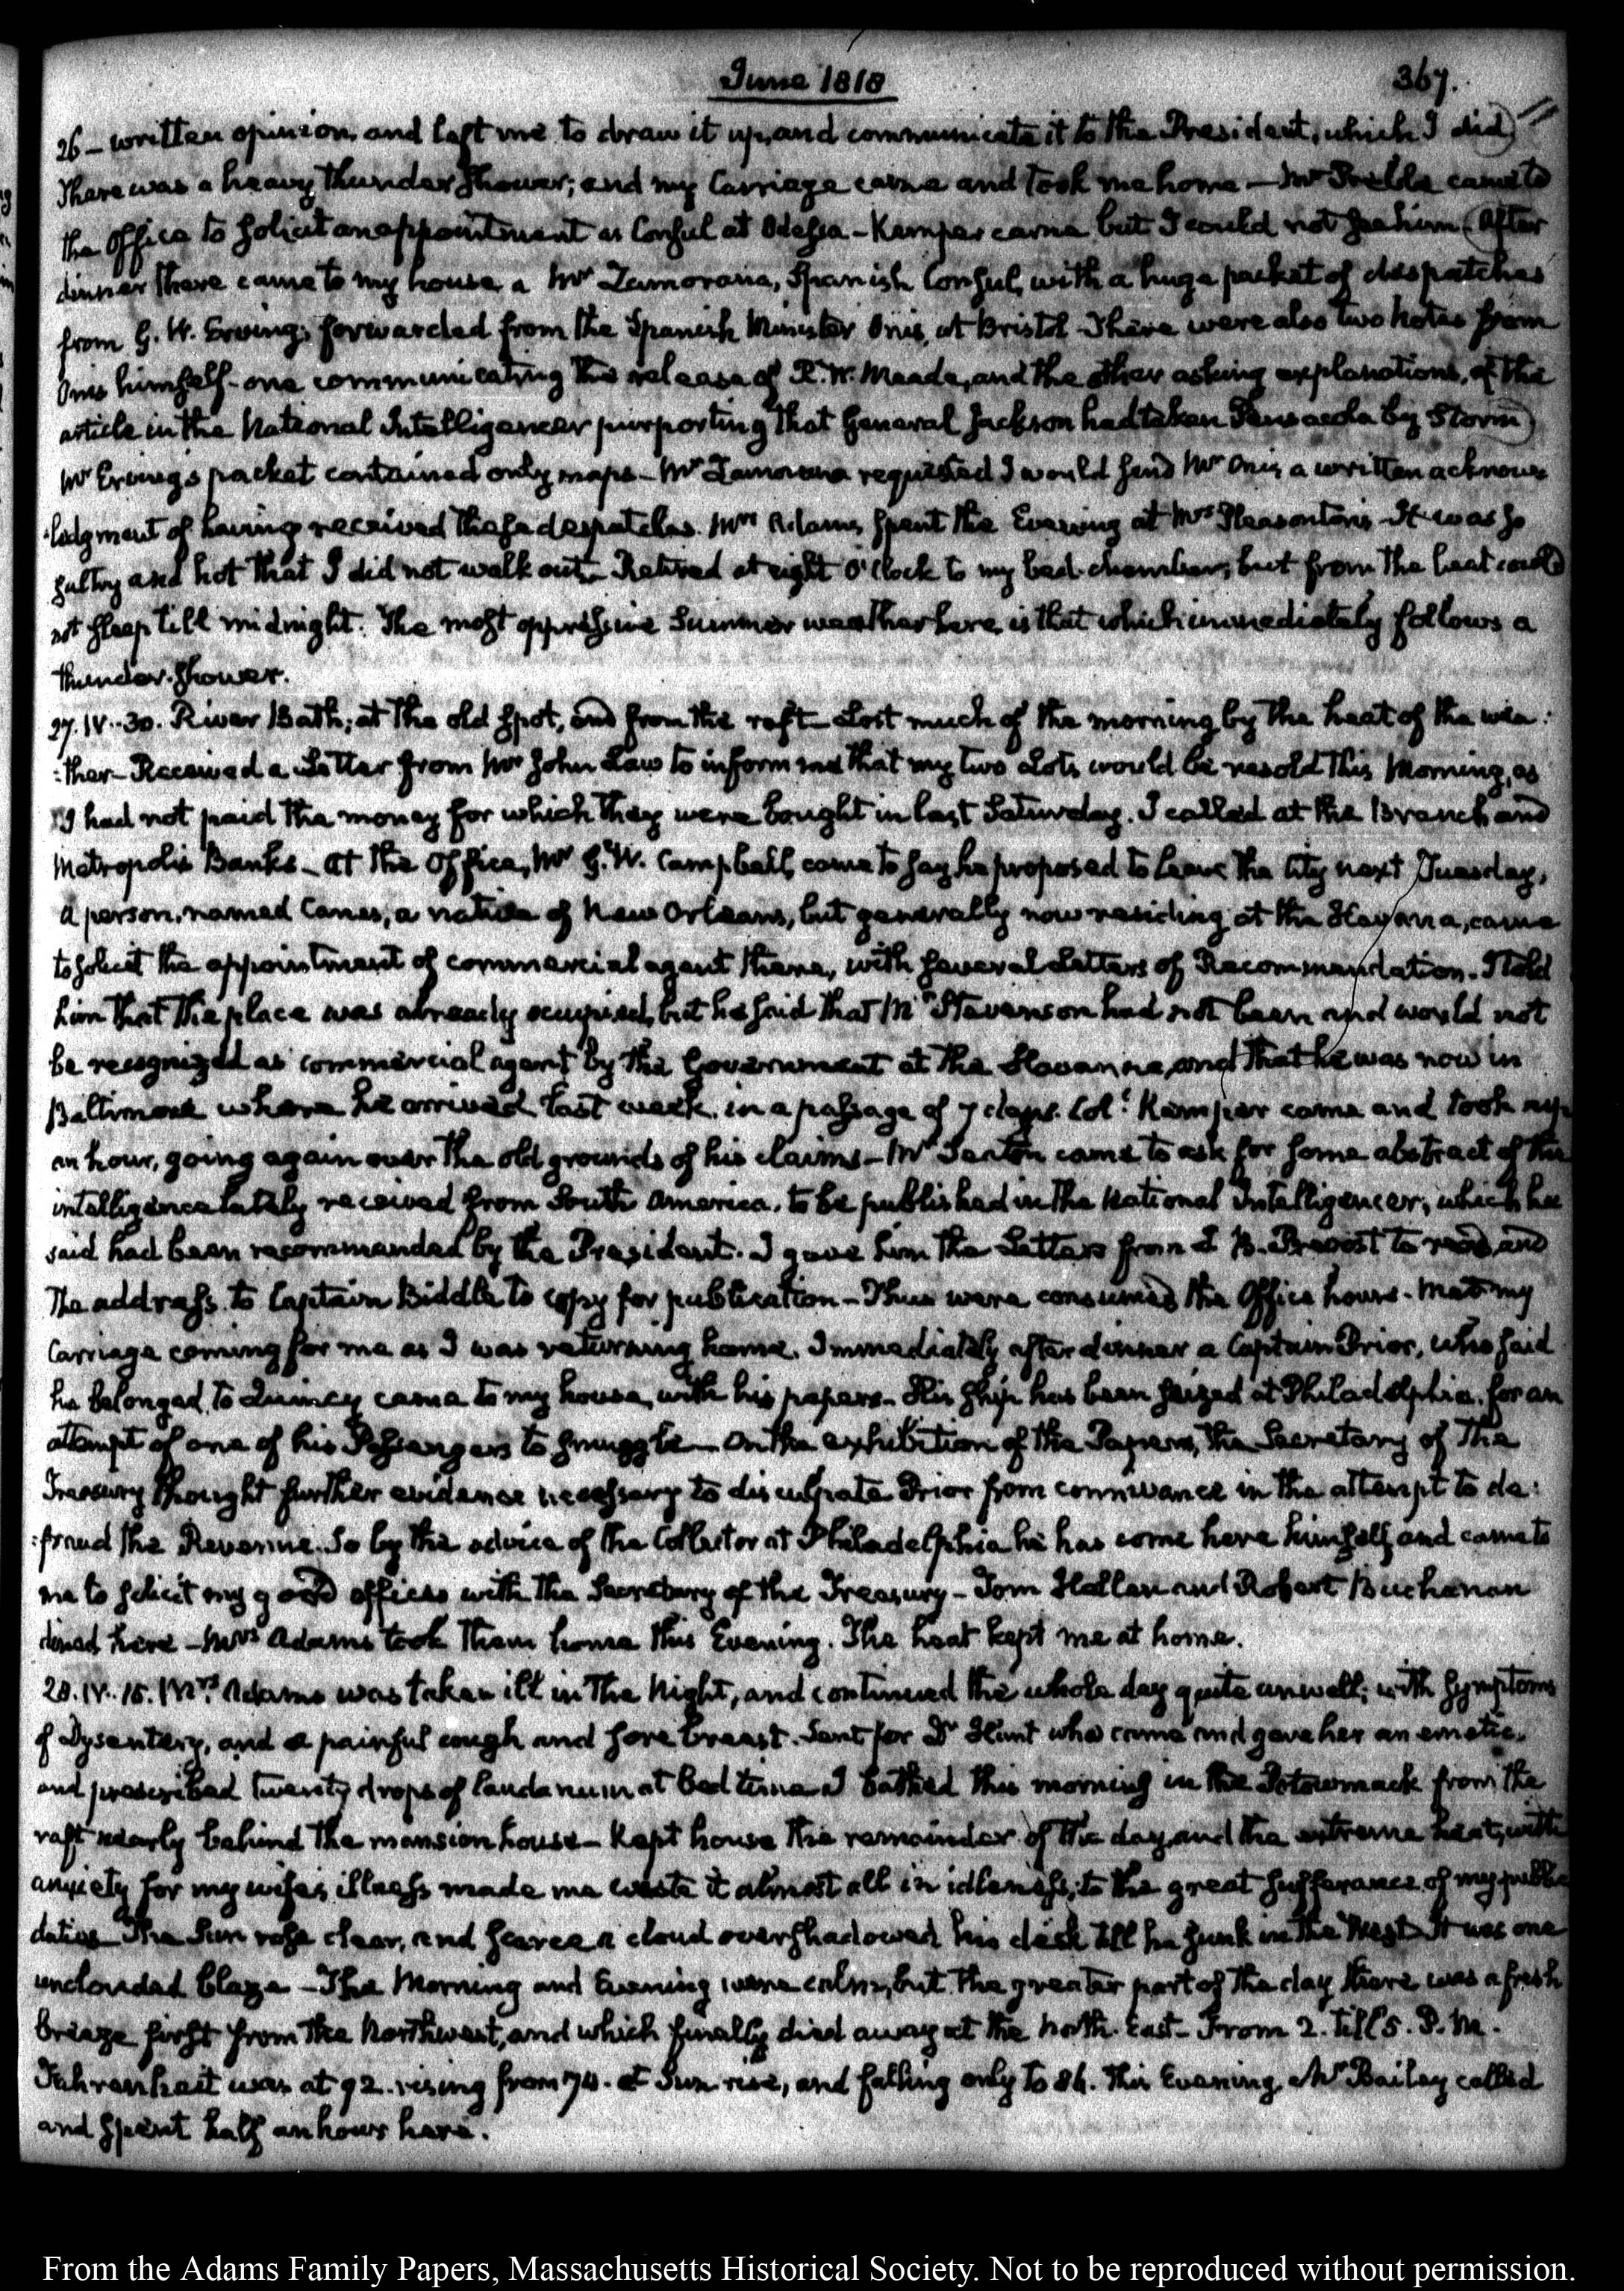 June 1818
367.
26 — written opinion, and left me to draw it up, and communicate it to the President, which I did
There was a heavy thunder shower; and my Carriage came and took me home — Mr came to
the Office to solicit an appointment as Consul at Odessa — Kemper came but I could not see him. After
dinner there came to my house a Mr Zamorana, Spanish Consul, with a huge packet of despatches
from G. W. Erving; forwarded from the Spanish Minister Onis, at Bristol — There were also two Notes from
Onis himself — one communicating the release of R. W. Meade, and the other asking explanations, of the
article in the National Intelligencer purporting that General Jackson had taken Pensacola by Storm
Mr Erving's packet contained only maps — Mr Zamorana requested I would send Mr Onis a written acknow-
-ledgment of having received these despatches. Mrs Adams spent the Evening at Mrs Pleasonton's — It was so
sultry and hot that I did not walk out — Retired at eight O'Clock to my bed-chamber, but from the heat could
not sleep till midnight. The most oppressive Summer weather here is that which immediately follows a
thunder-shower.
27. IV..30. River Bath; at the old spot, and from the raft — Lost much of the morning by the heat of the wea:
:ther — Received a Letter from Mr John Law to inform me that my two Lots would be resold this Morning, as
I had not paid the money for which they were bought in last Saturday. I called at the Branch and
Metropolis Banks — At the Office, Mr G. W. Campbell came to say he proposed to leave the City next Tuesday,
A person, named Canes, a native of New Orleans, but generally now residing at the Havanna, came
to solicit the appointment of commercial agent there, with several Letters of Recommendation. I told
him that the place was already occupied, but he said that Mr Stevenson had not been and would not
be recognized as commercial agent by the Government at the Havanna, and that he was now in
Baltimore where he arrived last week in a passage of 7 days. Col: Kemper came and took up
an hour, going again over the old grounds of his claims — Mr Seaton came to ask for some abstract of the
intelligence lately received from South America, to be published in the National Intelligencer, which he
said had been recommended by the President. I gave him the Letters from J. B. Prevost to read, and
the address to Captain Biddle to copy for publication — Thus were consumed the Office hours. Met my
Carriage coming for me as I was returning home. Immediately after dinner a Captain Prior, who said
he belonged to Quincy came to my house with his papers — His ship has been seized at Philadelphia, for an
attempt of one of his Passengers to smuggle — On the exhibition of the Papers, the Secretary of the
Treasury thought further evidence necessary to disculpate Prior from connivance in the attempt to de:
:fraud the Revenue. So by the advice of the Collector at Philadelphia he has come here himself, and came to
me to solicit my good offices with the Secretary of the Treasury — Tom Hellen and Robert Buchanan
dined here — Mrs Adams took them home this Evening. The heat kept me at home.
28. IV..15. Mrs Adams was taken ill in the Night, and continued the whole day quite unwell; with symptoms
of Dysentery, and a painful cough and sore breast. Sent for Dr Hunt who came and gave her an emetic,
and prescribed twenty drops of laudanum at bed time — I bathed this morning in the Potowmack from the
raft nearly behind the mansion house — Kept house the remainder of the day, and the extreme heat, with
anxiety for my wife's illness made me waste it almost all in idleness, to the great sufferance of my public
duties — The Sun rose clear, and scarce a cloud overshadowed his disk till he sunk in the West — It was one
unclouded blaze — The Morning and Evening were calm, but the greater part of the day there was a fresh
breeze first from the Northwest, and which finally died away at the North-East — From 2. till 5. P.M.
Fahrenheit was at 92. rising from 74. at Sun rise, and falling only to 86. This Evening Mr Bailey called
and spent half an hour here.
From the Adams Family Papers, Massachusetts Historical Society. Not to be reproduced without permission.